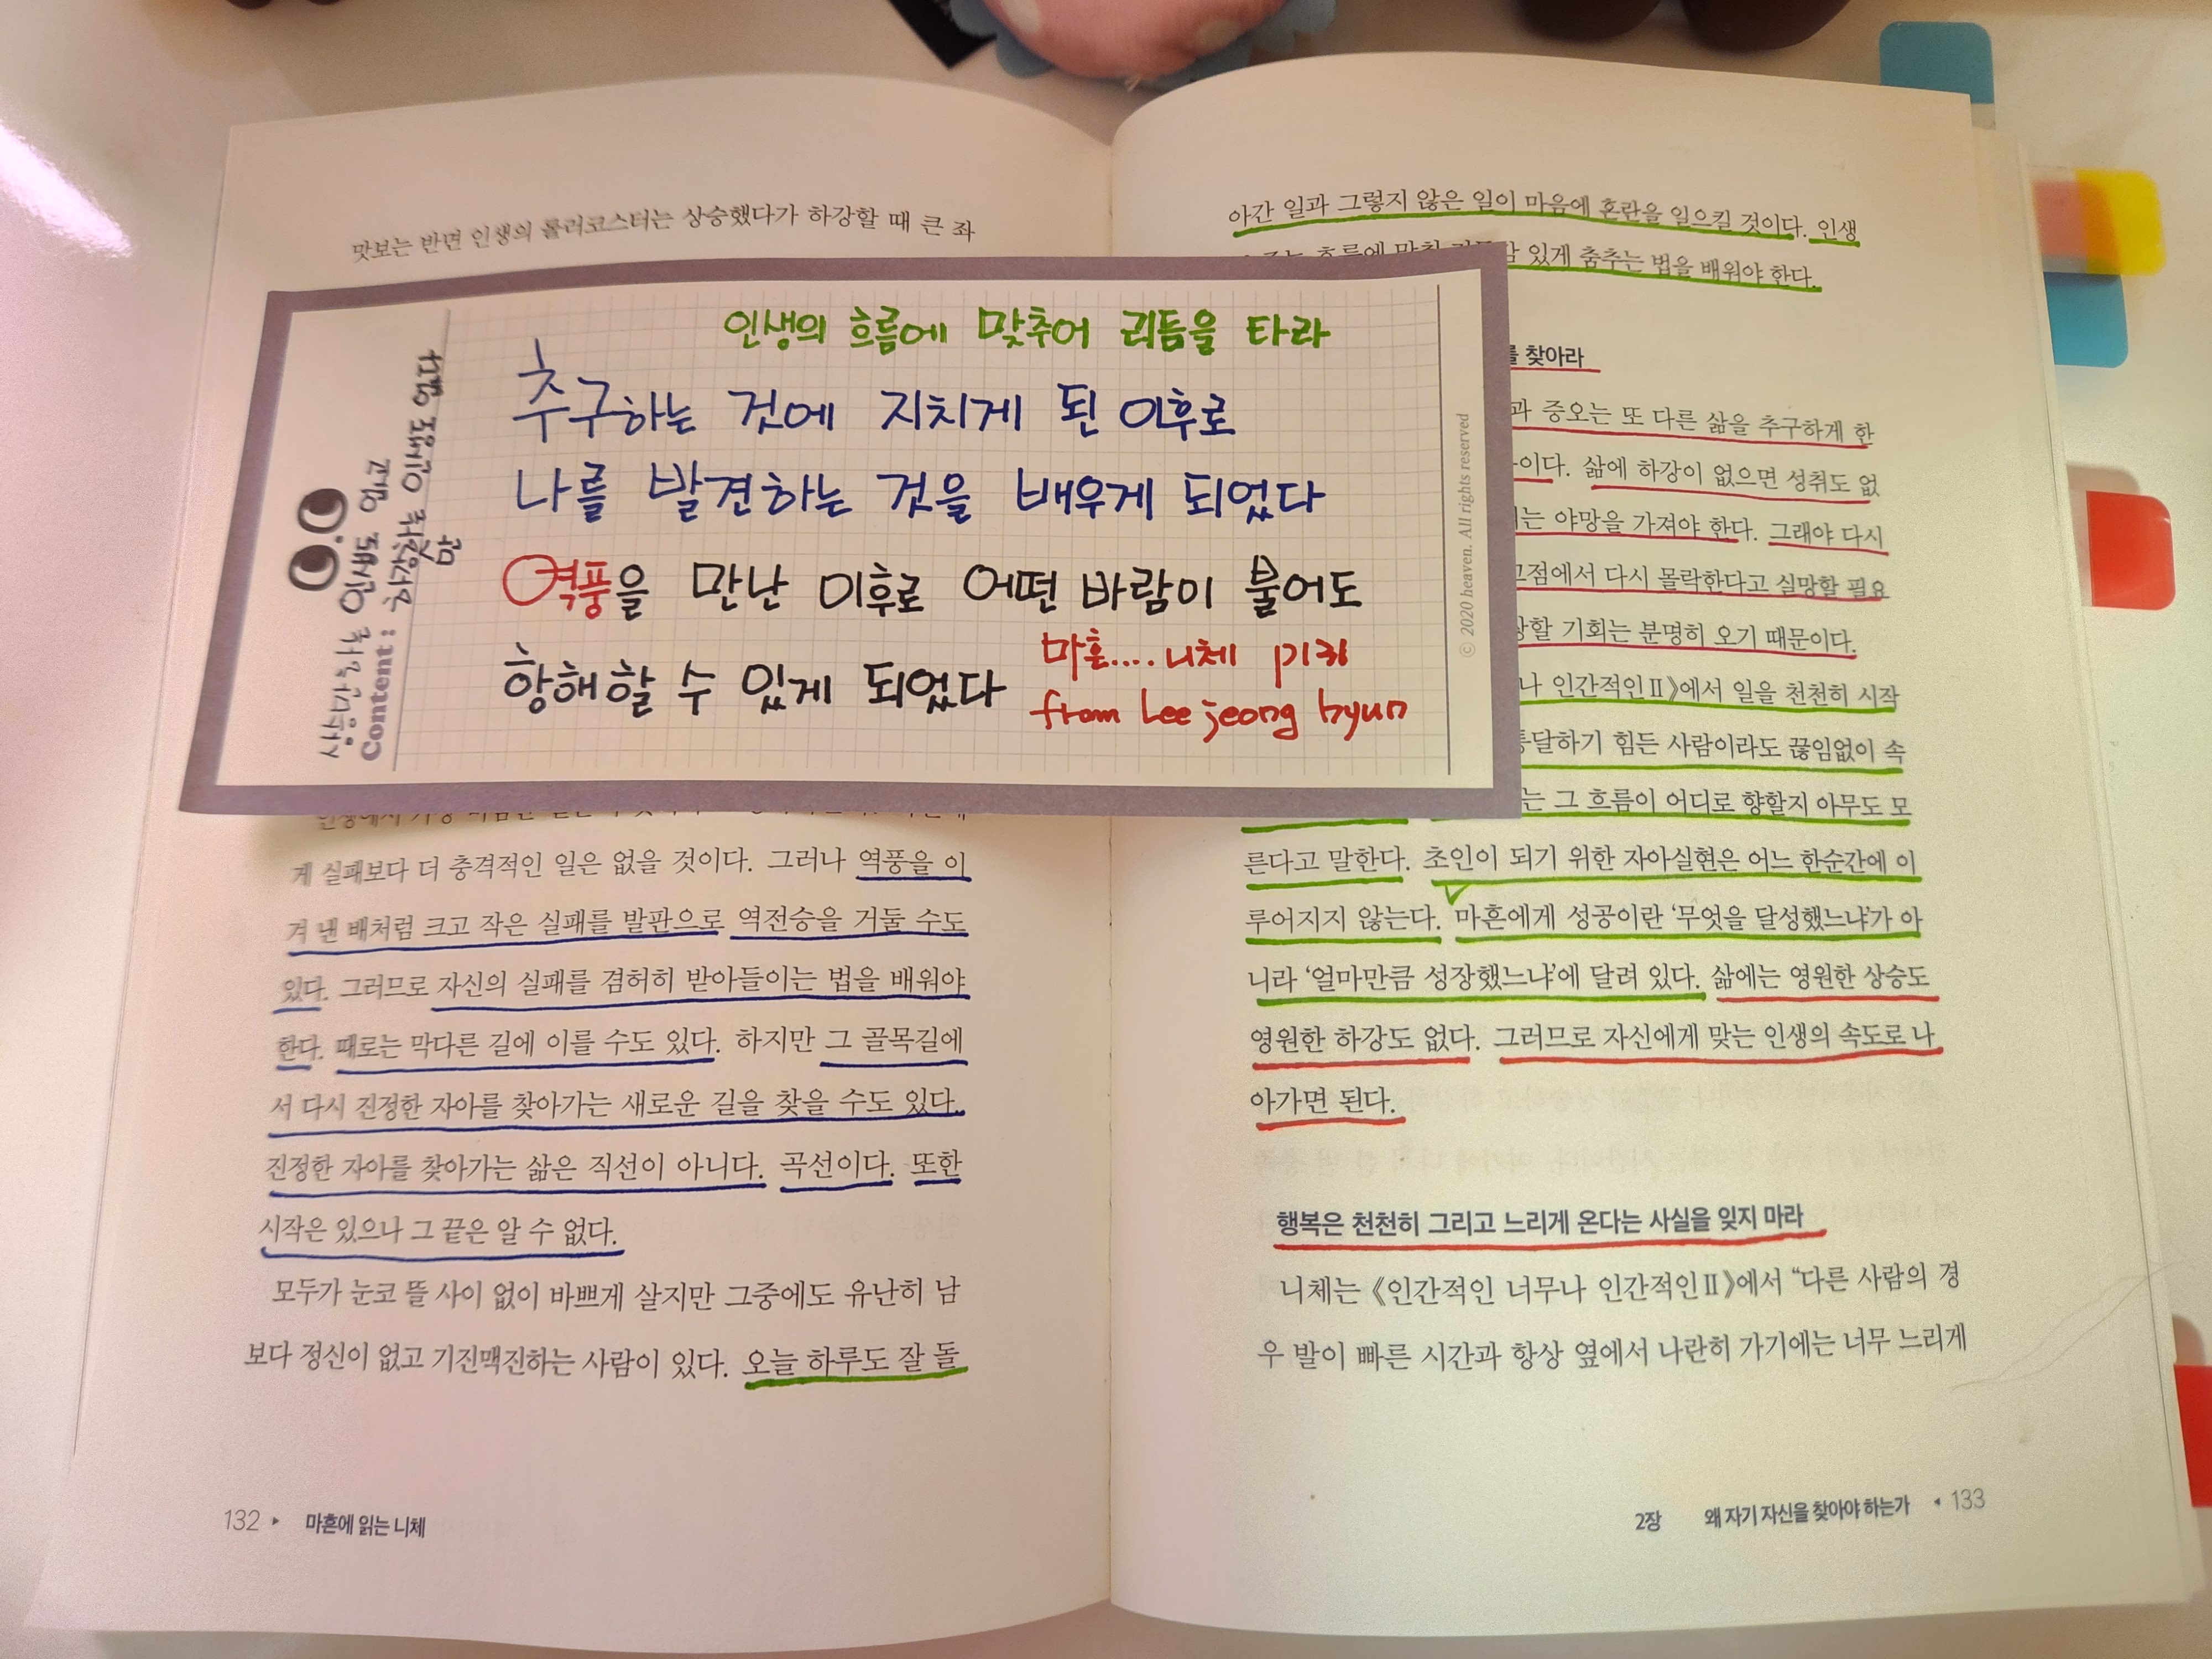 맛보는 반면 인생의 롤러코스터는 상승했다가 하강할 때 큰 좌
인생의 흐름에 맞추어 리듬을 타라
추구하는 것에 지치게 된 이후로
나를 발견하는 것을 배우게 되었다
역풍을 만난 이후로 어떤 바람이 불어도
항해할 수 있게 되었다
마흔.... 니체 p132
from Lee jeong hyun
Content :
© 2020 heaven. All rights reserved
게 실패보다 더 충격적인 일은 없을 것이다. 그러나 역풍을 이
겨 낸 배처럼 크고 작은 실패를 발판으로 역전승을 거둘 수도
있다. 그러므로 자신의 실패를 겸허히 받아들이는 법을 배워야
한다. 때로는 막다른 길에 이를 수도 있다. 하지만 그 골목길에
서 다시 진정한 자아를 찾아가는 새로운 길을 찾을 수도 있다.
진정한 자아를 찾아가는 삶은 직선이 아니다. 곡선이다. 또한
시작은 있으나 그 끝은 알 수 없다.
모두가 눈코 뜰 사이 없이 바쁘게 살지만 그중에도 유난히 남
보다 정신이 없고 기진맥진하는 사람이 있다. 오늘 하루도 잘 돌
132 마흔에 읽는 니체
아간 일과 그렇지 않은 일이 마음에 혼란을 일으킬 것이다. 인생
있게 춤추는 법을 배워야 한다.
를 찾아라
과 증오는 또 다른 삶을 추구하게 한
이다. 삶에 하강이 없으면 성취도 없
는 야망을 가져야 한다. 그래야 다시
고점에서 다시 몰락한다고 실망할 필요
상할 기회는 분명히 오기 때문이다.
나 인간적인Ⅱ》에서 일을 천천히 시작
통달하기 힘든 사람이라도 끊임없이 속
는 그 흐름이 어디로 향할지 아무도 모
른다고 말한다. 초인이 되기 위한 자아실현은 어느 한순간에 이
루어지지 않는다. 마흔에게 성공이란 ‘무엇을 달성했느냐’가 아
니라 ‘얼마만큼 성장했느냐’에 달려 있다. 삶에는 영원한 상승도
영원한 하강도 없다. 그러므로 자신에게 맞는 인생의 속도로 나
아가면 된다.
행복은 천천히 그리고 느리게 온다는 사실을 잊지 마라
니체는 《인간적인 너무나 인간적인Ⅱ》에서 “다른 사람의 경
우 발이 빠른 시간과 항상 옆에서 나란히 가기에는 너무 느리게
2장 왜 자기 자신을 찾아야 하는가 133